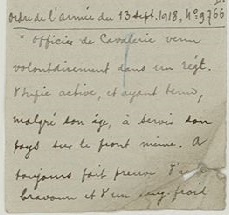 Ordre de l'armée du 13 sept. 1918, N° 9766
"Officier de Cavalerie venu
volontairement dans un régt.
d'Inf'ie active, et ayant tenu,
malgré son âge, à servir son
pays sur le front même. A
toujours fait preuve d'une
bravoure et d'un sang froid